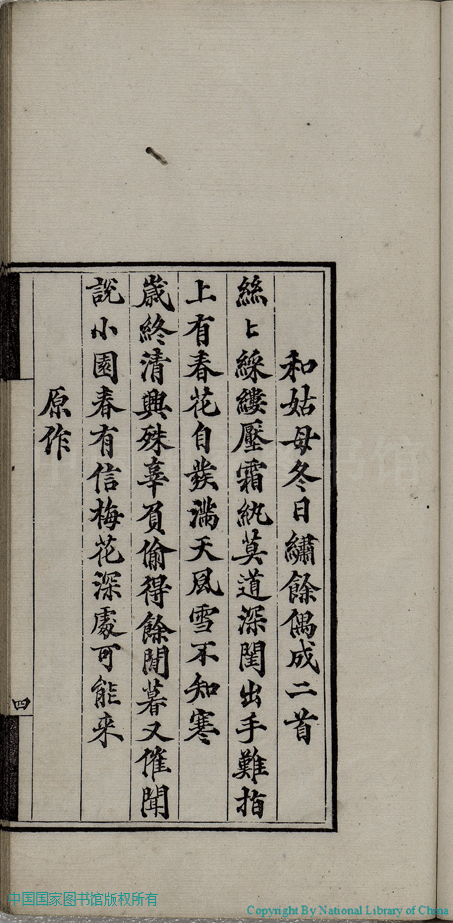 和姑母冬日繡餘偶成二首
絲〻綵縷壓霜紈莫道深閨出手難指
上有春花自發滿天風雪不知寒
歲終清興殊辜負偷得餘閒暮又催聞
說小園春有信梅花深處可能來
原作
四
中国国家图书馆版权所有
Copyright By National Library of China